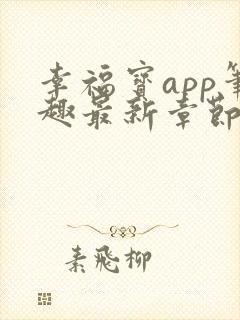 幸福宝app笔
趣最新章节
素飞柳